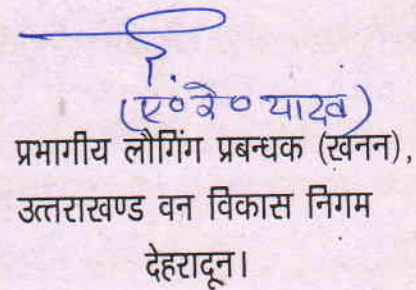 (ए० रे० यादव)
प्रभागीय लौगिंग प्रबन्धक (खनन),
उत्तराखण्ड वन विकास निगम
देहरादून।